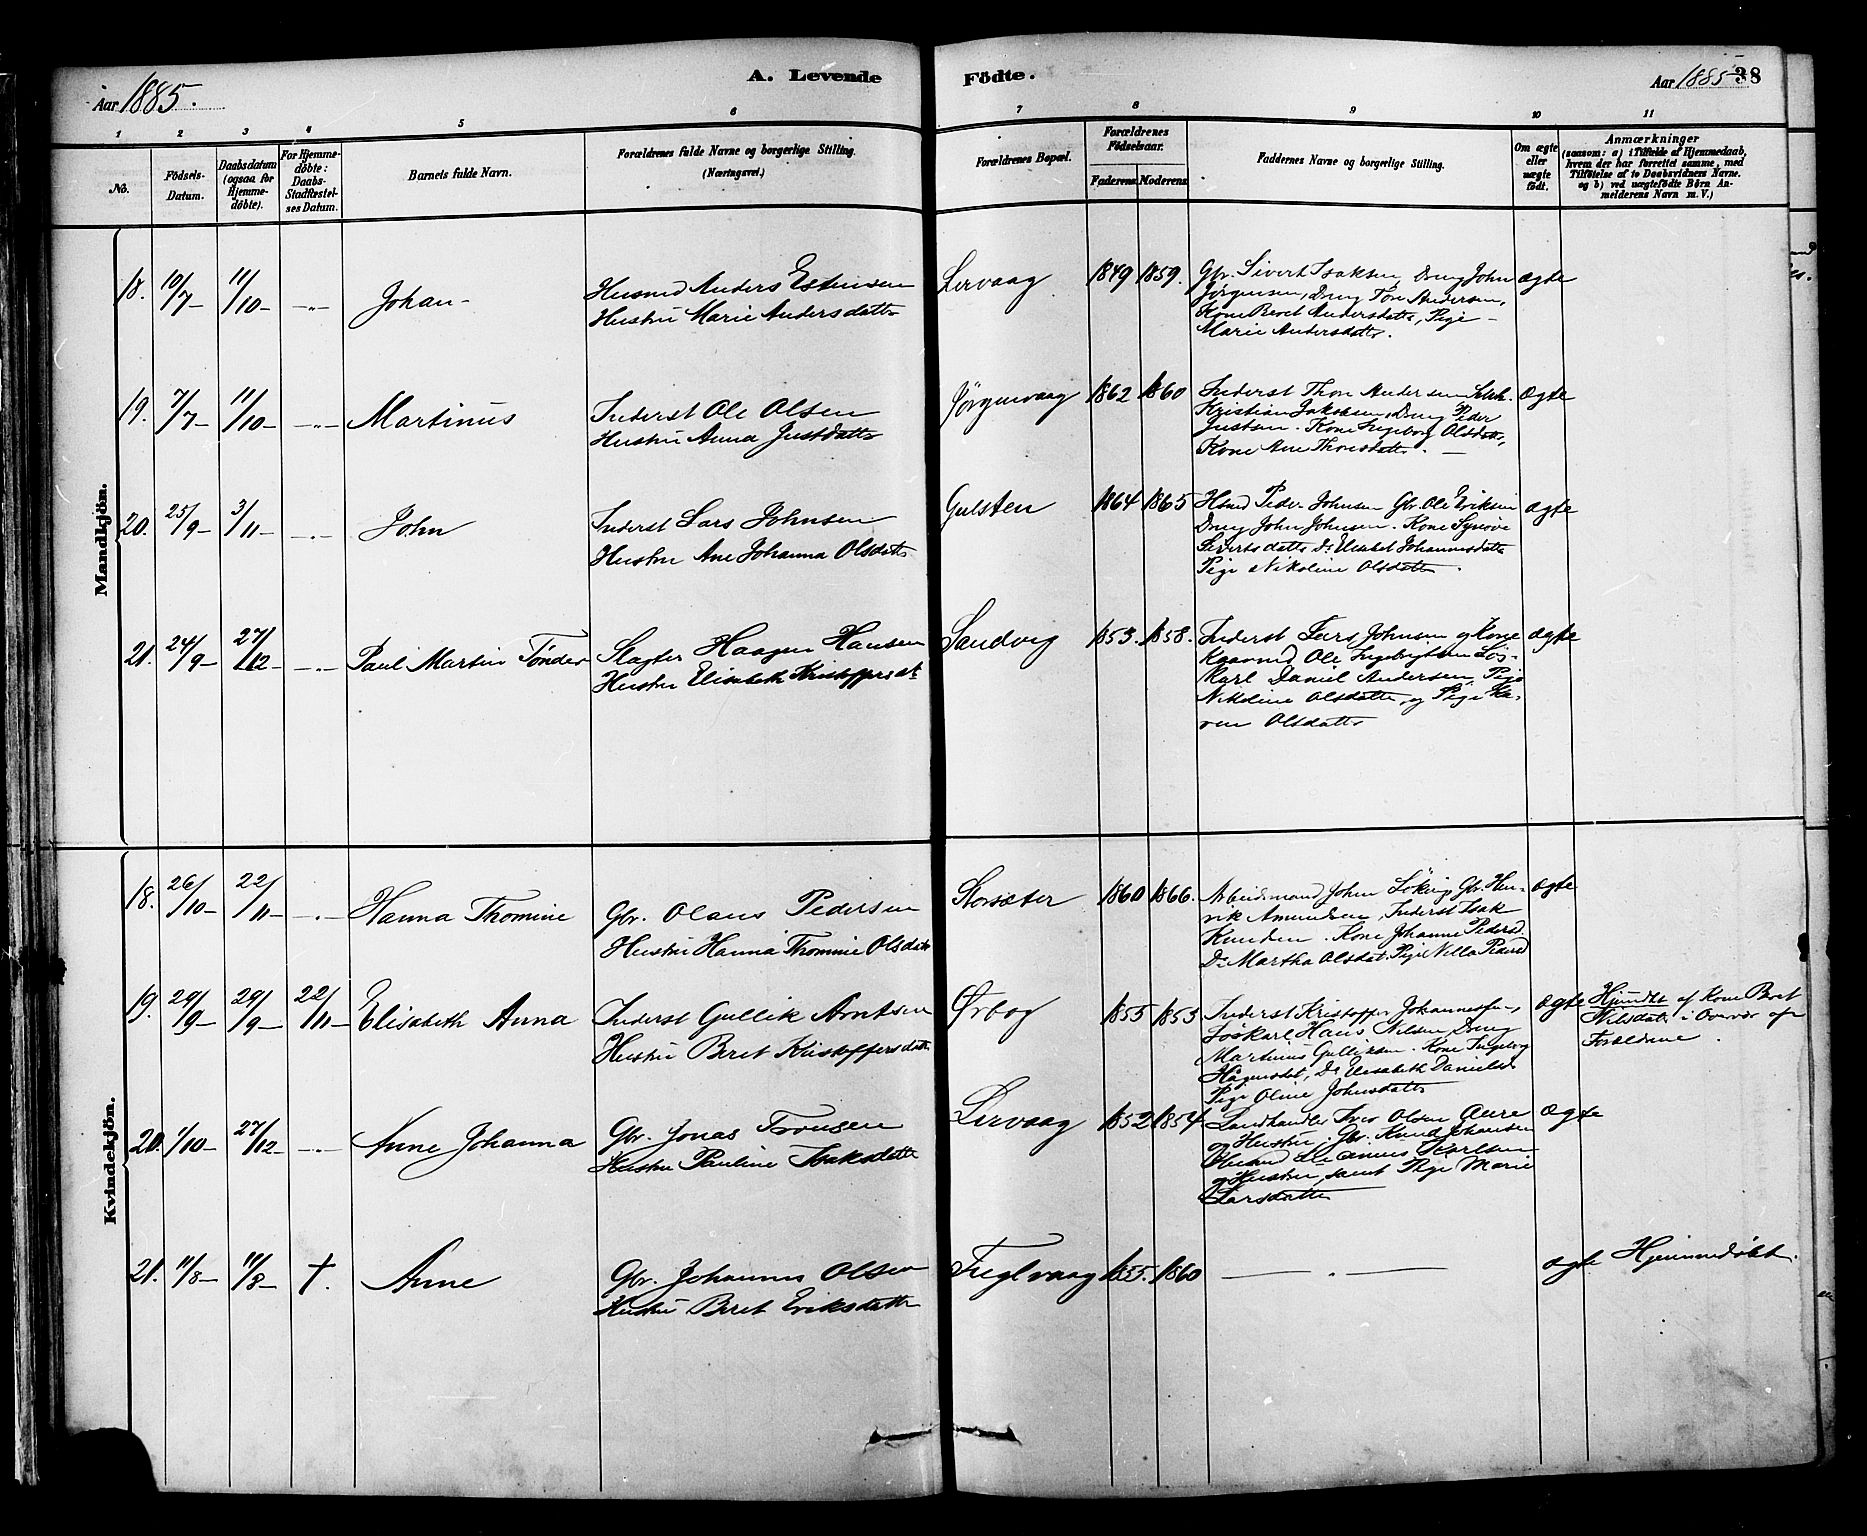 Aar 1885.
A. Levende
Födte.
Aar 1885 38
1 2 3 4 5 6 7 8 9 10 11
No.
Födsels-
Datum.
Daabsdatum
(ogsaa for
Hjemme-
döbte).
For Hjemme-
döbte:
Daabs-
Stadfæstel-
ses Datum.
Barnets fulde Navn.
Forældrenes fulde Navne og borgerlige Stilling.
(Næringsvei.)
Forældrenes Bopæl.
Forældrenes
Födselsaar.
Faderens. Moderens.
Faddernes Navne og borgerlige Stilling.
Om ægte
eller
uægte
födt.
Anmærkninger
(saasom: a) i Tilfælde af Hjemmedaab,
hvem der har forrettet samme, med
Tilföielse af to Daabsvidners Navne.
og b) ved uægtefödte Börn An-
melderens Navn m. V.)
Mandkjön.
18. 10/7 11/10 -"- Johan
Husmd Anders Estensen
Hustru Marie Andersdatter
Lervaag 1849 1859.
Gbr. Sivert Isaksen, Dreng John
Jørgensen, Dreng Tore Andersen,
Kone Beret Andersdatter, Pige
Marie Andersdatter.
ægte
19. 7/7 11/10 -"- Martinus
Inderst Ole Olsen
Hustru Anna Justdatter
Jørgenvaag 1862 1860
Inderst Thore Andersen
Kristian Jakobsen, Dreng Peder
Justsen. Kone Ingeborg Olsdatter,
Kone Ane Thoresdatter.
ægte
20. 25/9 3/11 -"- John
Inderst Lars Johnsen
Hustru Ane Johanna Olsdatter
Gulsten 1864 1865
Hsmd Peder Johnsen Gbr. Ole Eriksen
Dreng John Johnsen. Kone Synøve
Sivertsdatter Do Elisabet Johannesdatter
Pige Nikoline Olsdatter.
ægte
21. 24/9 27/12 -"- Paul Martin Tønder
Slagter Haagen Hansen
Hustru Elisabeth Kristoffersdt
Sandvig 1853. 1858.
Inderst Lars Johnsen og Kone
Ole Ingebrigtsen Løs-
karl Daniel Andersen, Pige
Nikoline Olsdatter, og Pige Ka-
ren Olsdatter
ægte
Kvindekjön.
18. 26/10 22/11 -"- Hanna Thomine
Gbr. Olaus Pedersen
Hustru Hanna Thomine Olsdatter
Storsæter 1860 1866.
Arbeidsmand John Løking, Gbr. Hen-
rik Amundsen, Inderst Isak
Knudsen. Kone Johanne Pedersd.
Do Martha Olsdat. Pige Nilla Pedersd
ægte
19. 29/9 29/9 22/11 Elisabeth Anna
Inderst Gullik Arntsen
Hustru Beret Kristoffersdatter
Ørbog 1855 1853
Inderst Kristoffer Johannessen,
Løskarl Hans Nilsen, Dreng
Martinus Gulliksen. Kone Ingeborg
Hagensdat, Do Elisabeth Danielsd
Pige Oline Johnsdatter
ægte
Hjemdbt af Kone Beret
Nilsdat i Overvær af
Forældrene.
20. 1/10 27/12 -"- Anne Johanna
Gbr. Jonas Tronsen
Hustru Pauline Isaksdatter
Lervaag 1852 1854
Landhandler Iver Olsen Aure
og Hustru. Gbr. Knud Johansen
Karlsen
og Hustru, samt Pige Marie
Larsdatter
ægte
21. 11/8 11/8 †. Anne
Gbr. Johannes Olsen
Hustru Beret Eriksdatter
Fuglvaag 1855. 1860 —"—
ægte Hjemmedøbt.